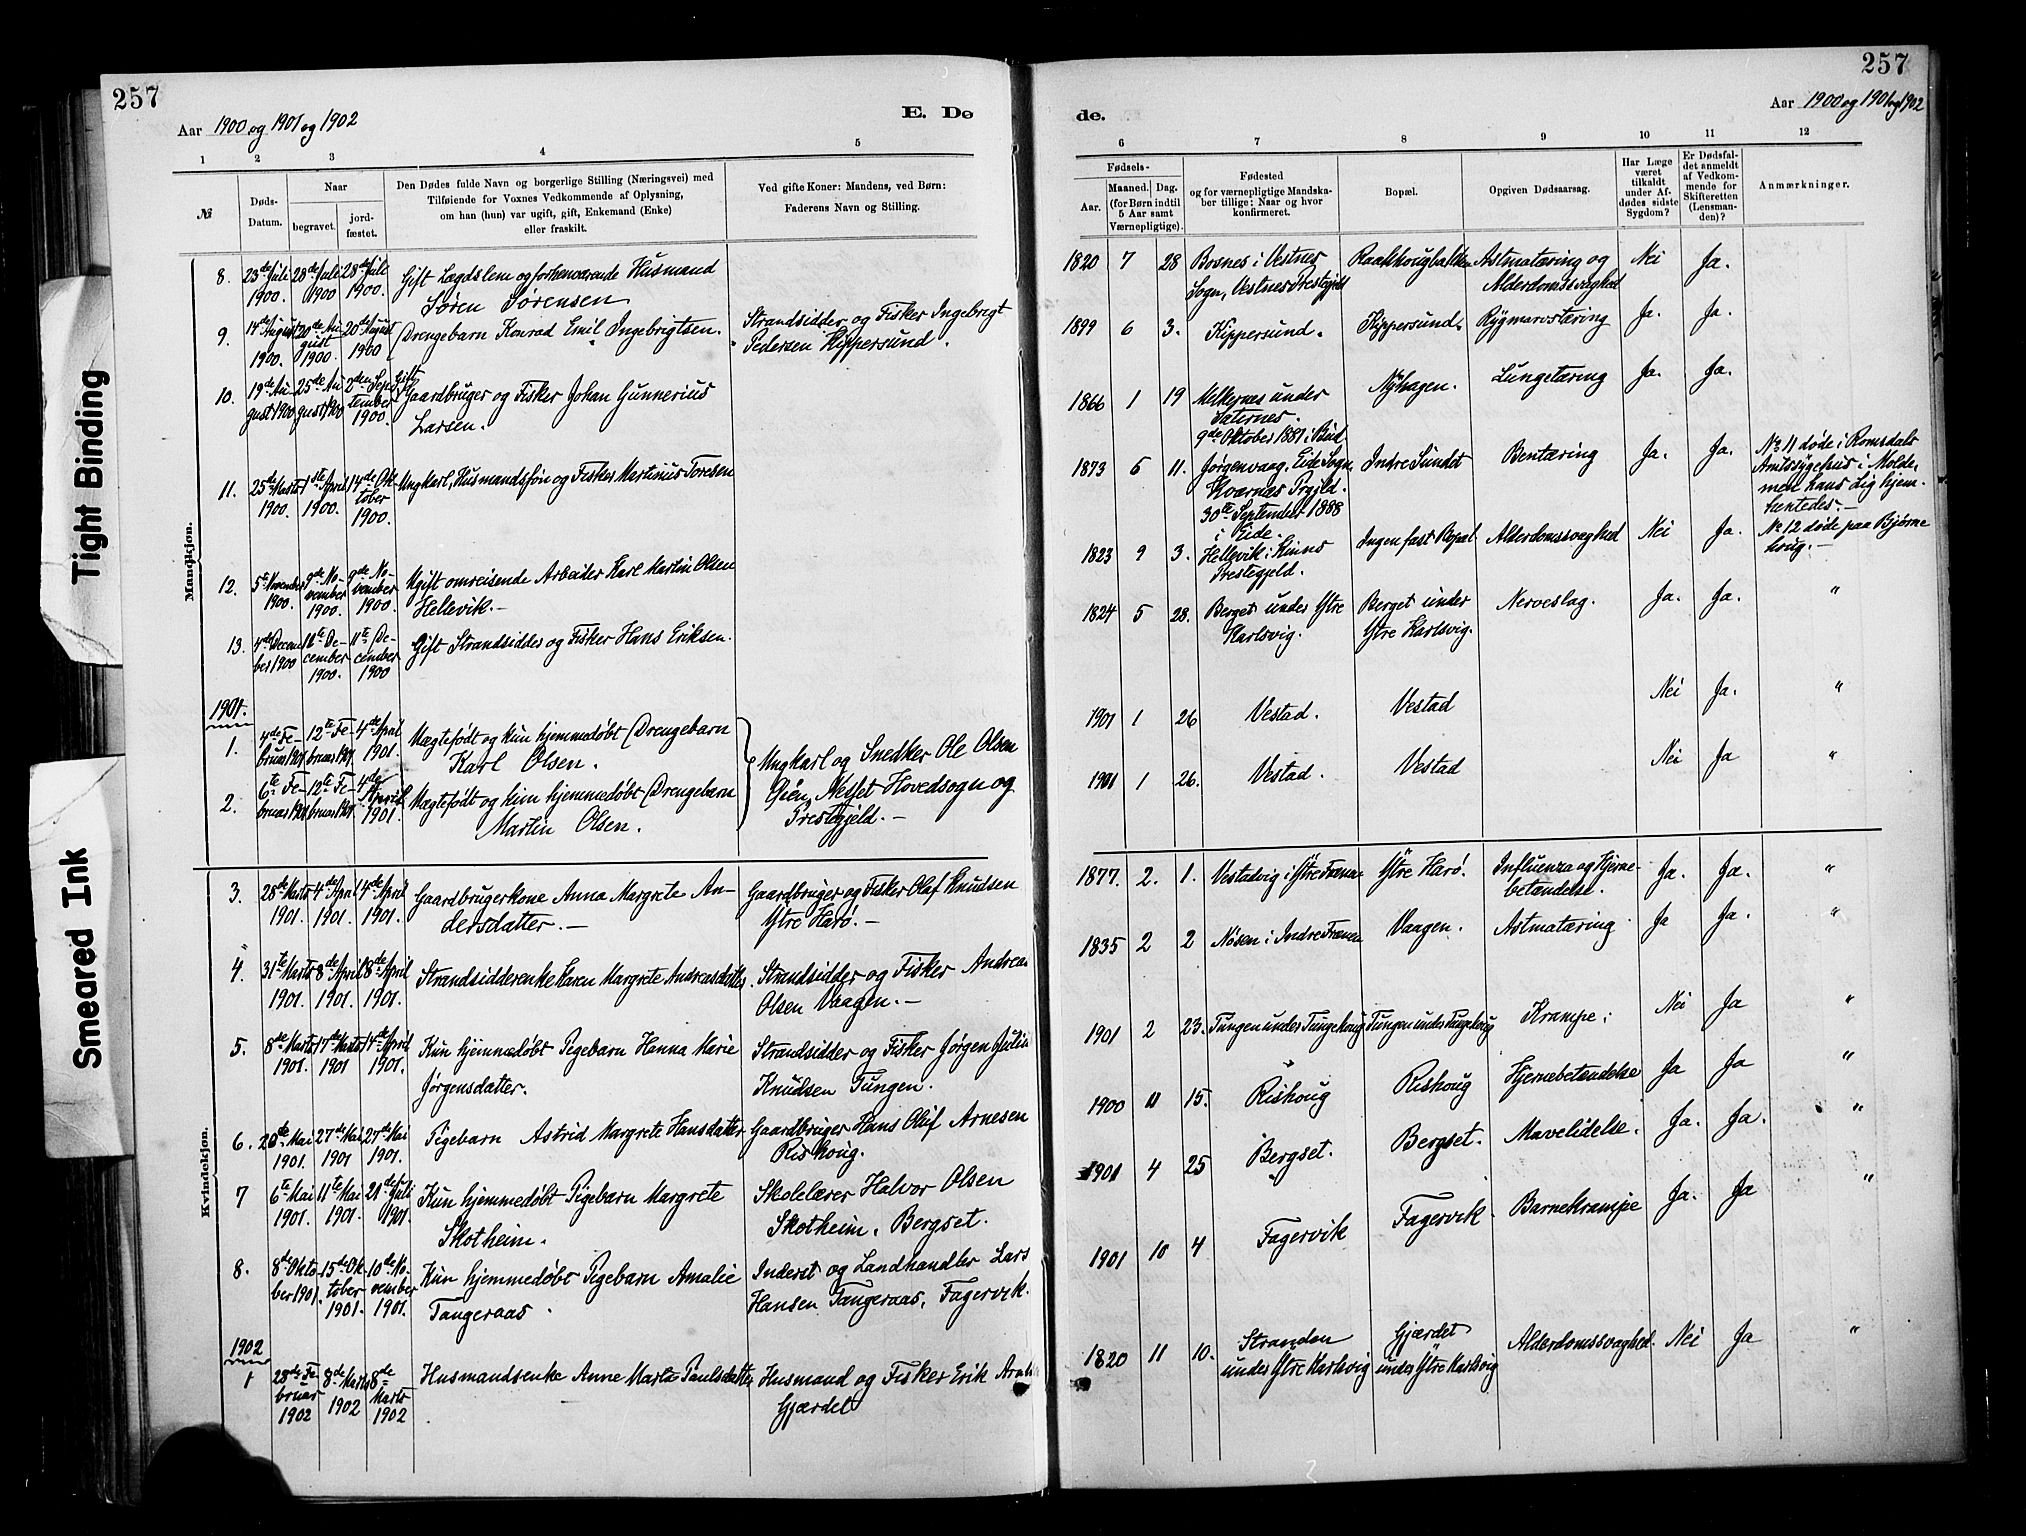 257
257
Aar 1900 og 1901 og 1902
E. Dø
de.
Aar 1900 og 1901 og 1902
1 2 3 4 5
6 7 8 9 10 11 12
№
Døds-
Datum.
Naar
begravet.
jord-
fæstet.
Den Dødes fulde Navn og borgerlige Stilling (Næringsvei) med
Tilføiende for Voxnes Vedkommende af Oplysning,
om han (hun) var ugift, gift, Enkemand (Enke)
eller fraskilt.
Ved gifte Koner: Mandens, ved Børn:
Faderens Navn og Stilling.
Fødsels-
Aar.
Maaned. Dag.
(for Børn indtil
5 Aar samt
Værnepligtige).
Fødested
og for værnepligtige Mandska-
ber tillige: Naar og hvor
konfirmeret.
Bopæl.
Opgiven Dødsaarsag.
Har Læge
været
tilkaldt
under Af-
dødes sidste
Sygdom?
Er Dødsfal-
det anmeldt
af Vedkom-
mende for
Skifteretten
(Lensman-
den)?
Anmærkninger.
Mandkjøn.
8. 23de Juli 28de Juli 28de Juli Gift Lægdslem og forhenværende Husmand
1900. 1900 1900. Søren Sørensen
1820 7 28 Bosnes i Vestnes Raakhougbakken Astmatæring og Nei Ja.
Sogn, Vestnes Prestegjeld Alderdomssvaghed
9. 14de August 20de Au- 20de August Drengebarn Konrad Emil Ingebrigtsen. Strandsidder og Fisker Ingebrigt
gust
1900. 1900. 1900 Pedersen Kippersund.
1899 6 3. Kippersund. Kippersund. Rygmarvstæring Ja. Ja.
10. 19de Au- 25de Au- 2den Sep- Gift
gust 1900 gust 1900 tember Gaardbruger og Fisker Johan Gunnerius
1900. Larsen.
1866 1 19 Melkernæs under Nyhagen. Lungetæring Ja. Ja.
Saternes.
9de Oktober 1881 i Bud
11. 25de Marts 1ste April 14de Ok- Ungkarl, Husmandssøn og Fisker Martinus Toresen
1900. 1900. tober
1900.
1873 5 11. Jørgenvaag, Eide Sogn, Indre Sundet Bentæring Ja. Ja. No 11 døde i Romsdals
Kvernæs Prgjld. Amtssygehus i Molde,
30te September 1888 men hans Lig hjem-
i Eide. hentedes.-
12. 5te November 9de No- 9de No- Ugift omreisende Arbeider Karl Martin Olsen
1900. vember vember Hellevik.-
1900. 1900.
1823 9 3. Hellevik i Kinns Ingen fast Bopæl Alderdomssvaghed Nei Ja. No 12 døde paa Bjørne
Prestegjeld. houg.-
13. 4de Decem- 11te De- 11te De- Gift Strandsidder og Fisker Hans Eriksen.
ber 1900 cember cember
1900. 1900
1824 5 28. Berget under Ytre Berget under Nerveslag. Ja. Ja. "
Karlsvig. Ytre Karlsvig.
1901.
1. 4de Fe- 12te Fe- 4de April Uægtefødt og kun hjemmedøbt Drengebarn
bruar 1901 bruar 1901 1901. Karl Olsen.
Ungkarl og Snedker Ole Olsen
Øien, Nesset Hovedsogn og
Prestegjeld.-
1901 1 26 Vestad. Vestad Nei Ja. "
2. 6te Fe- 12te Fe- 4de April Uægtefødt og kun hjemmedøbt Drengebarn
bruar 1901 bruar 1901 1901. Martin Olsen.
1901 1 26. Vestad. Vestad Nei Ja "
Kvindekjøn.
3. 28de Marts 4de April 4de April Gaardbrugerkone Anna Margrete An- Gaardbruger og Fisker Olaf Knudsen
1901. 1901. 1901. dersdatter.- Ytre Harø.-
1877. 2. 1. Vestadvig i Ytre Fræna Ytre Harø. Influenza og Hjerne- Ja. Ja. "
betændelse.
4. 31te Marts 8de April 8de April Strandsidderenke Karen Margrete Andreasdatter. Strandsidder og Fisker Andreas
1901. 1901. 1901. Olsen Vaagen.-
1835 2 2 Nøsen i Indre Fræna Vaagen. Astmatæring. Ja Ja. "
5. 8de Marts 17de Marts 14de April Kun hjemmedøbt Pigebarn Hanna Marie Strandsidder og Fisker Jørgen Julius
1901. 1901 1901. Jørgensdatter. Knudsen Tungen.
1901 2 23. Tungen under Tungehoug Tungen under Tungehoug Krampe. Nei Ja "
6. 20de Mai 27de Mai 27de Mai Pigebarn Astrid Margrete Hansdatter Gaardbruger Hans Oluf Arnesen
1901. 1901 1901. Rishoug.
1900 11 15. Rishoug Rishoug Hjernebetændelse Ja Ja "
7 6te Mai 11te Mai 21de Juli Kun hjemmedøbt Pigebarn Margrete Skolelærer Halvor Olsen
1901. 1901. 1901. Skotheim. Skotheim, Bergset.
1901 4 25 Bergset. Bergset. Mavelidelse. Ja. Ja. "
8. 8de Okto- 15de Ok- 10de No- Kun hjemmedøbt Pigebarn Amalie Inderst og Landhandler Lars
ber 1901. tober vember Tangeraas. Hansen Tangeraas, Fagervik.
1901. 1901.
1901 10 4 Fagervik Fagervik Barnekrampe Ja. Ja "
1902
1 28de Fe- 8de Marts 8de Husmandsenke Anne Marta Paulsdatter Husmand og Fisker Erik
bruar 1902 Marts Gjærdet
1902 1902
1820 11 10. Stranden Gjærdet Alderdomssvaghed. Nei Ja "
under Ytre Karlsvig under Ytre Karlsvig
Tight Binding
Smeared Ink